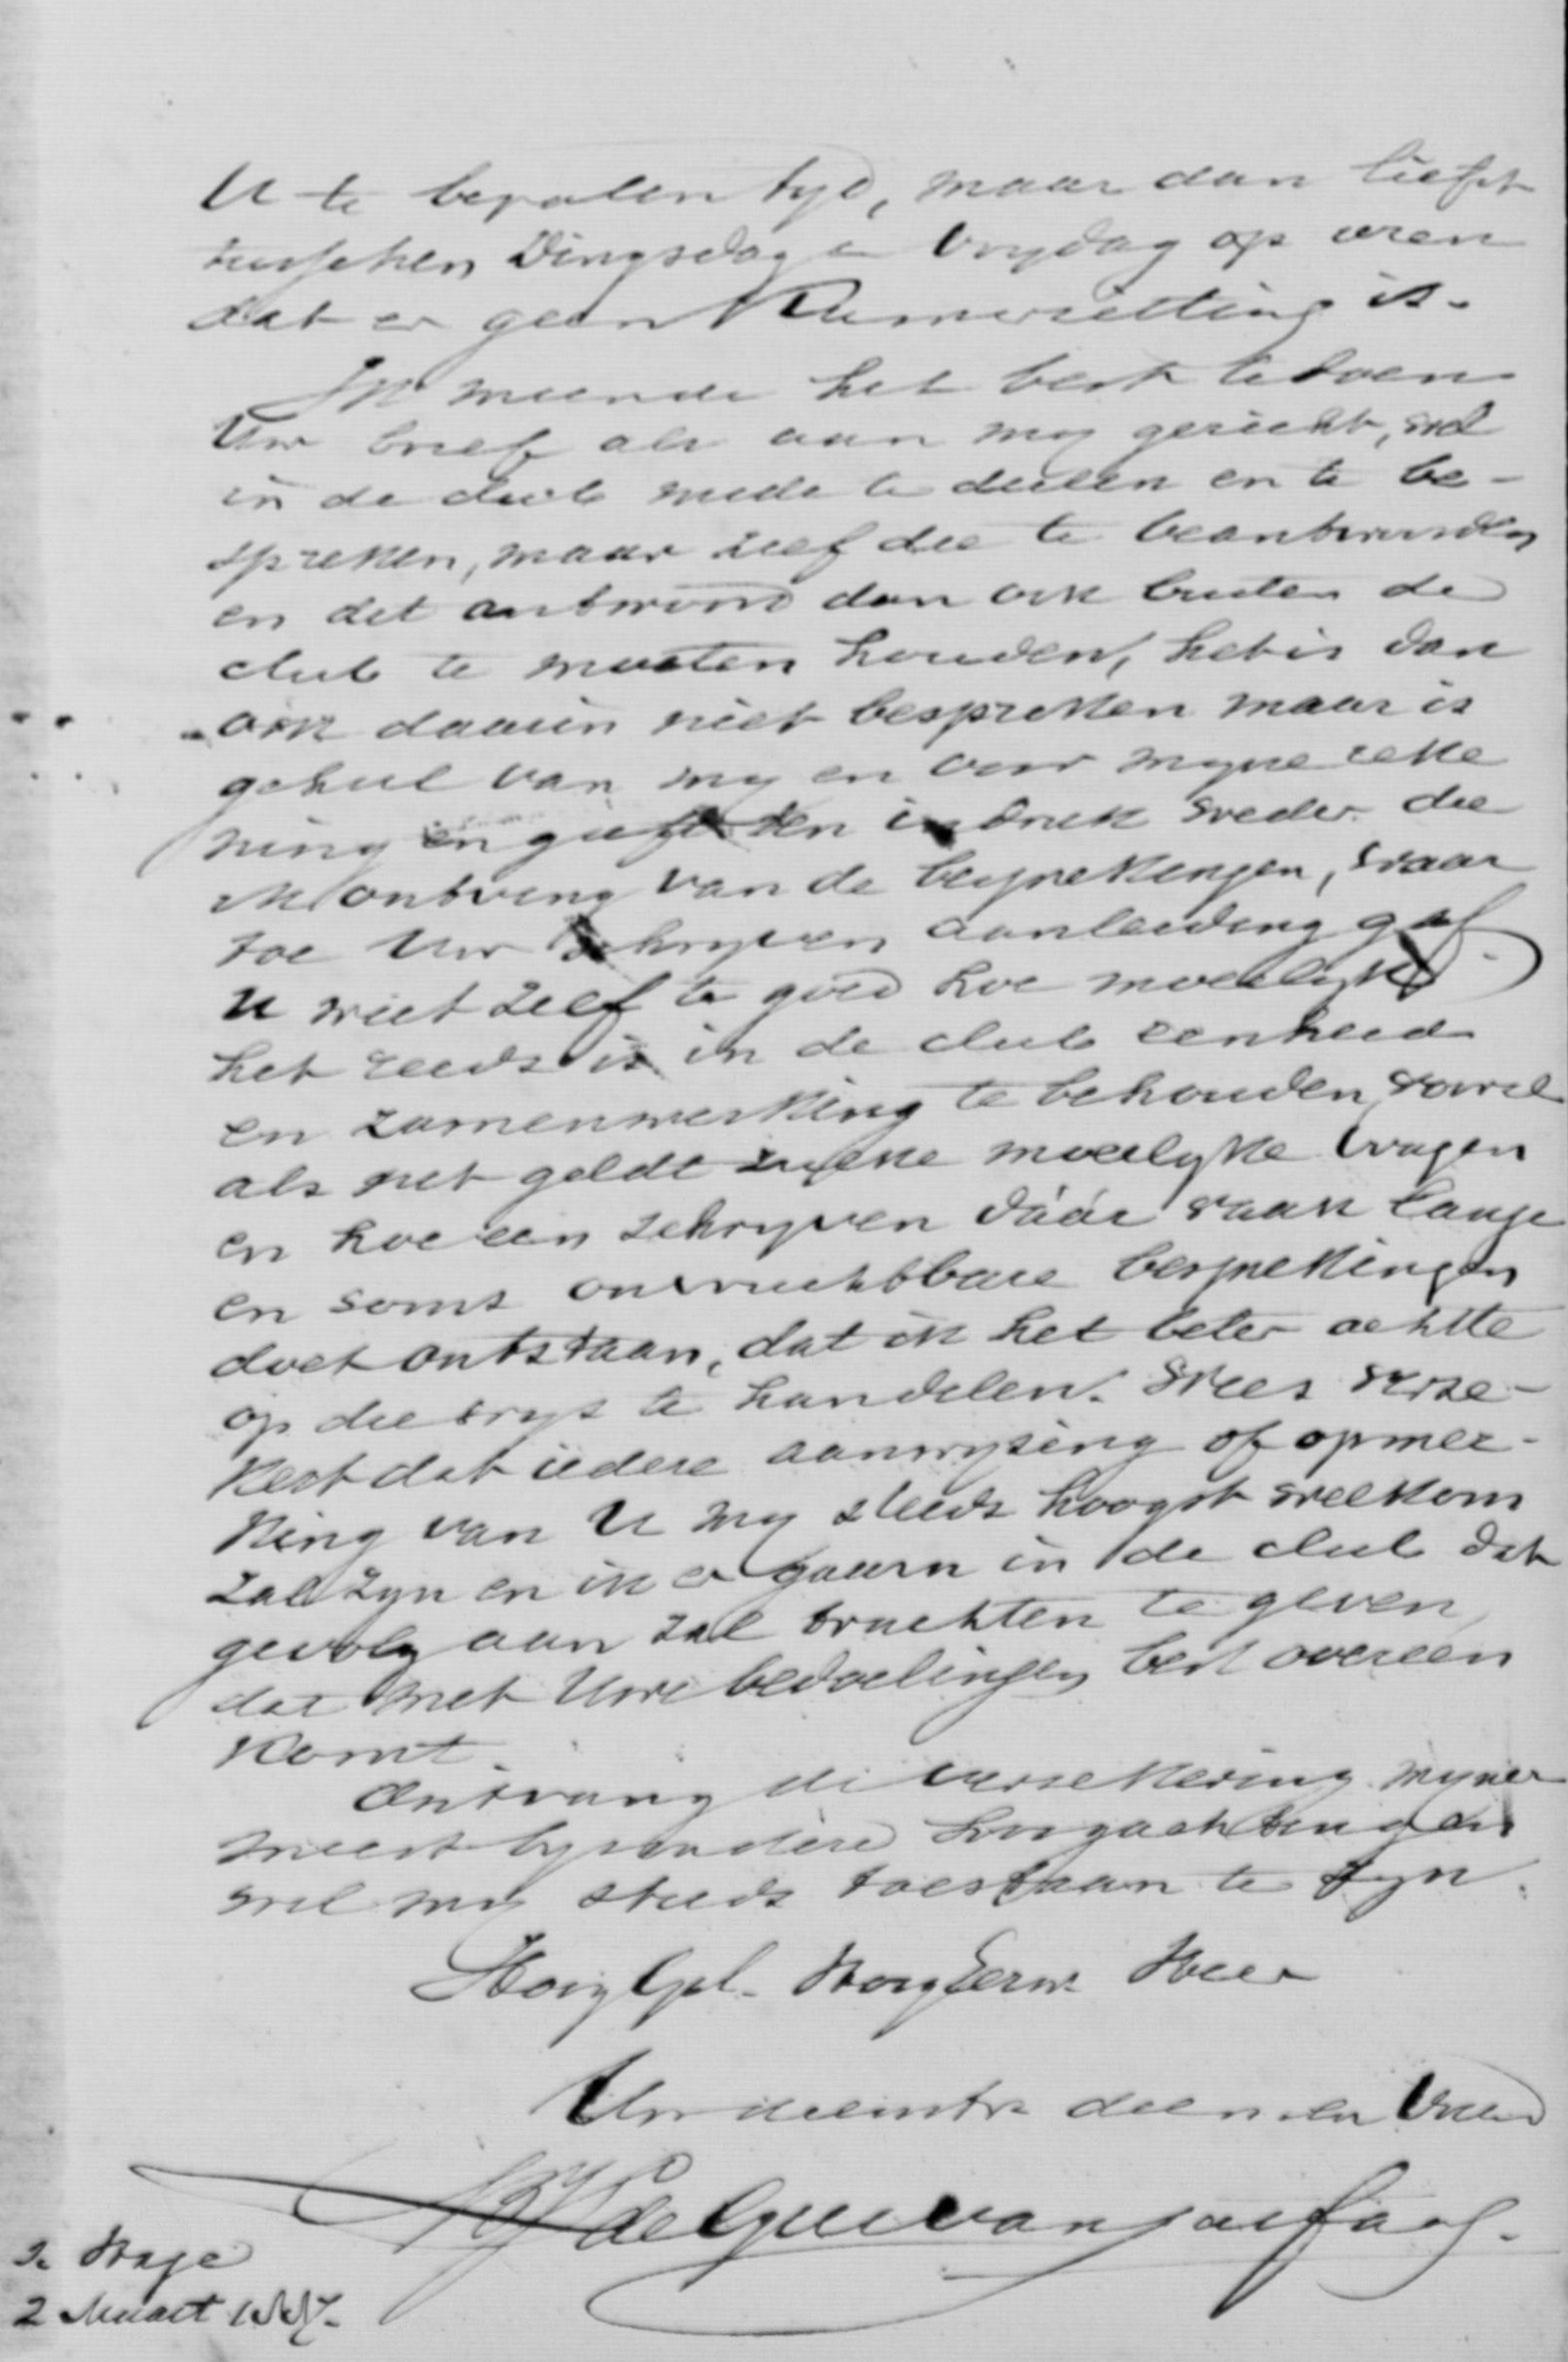 U te bepalen tyd, maar dan liefst
tusschen Dingsdag en Vrydag op uren
dat er geen Kamerzitting is.
Ik meende het best te doen
Uw brief als aan my gericht, wel
in de club mede te deelen en te be-
spreken, maar zelf die te beantwoorden
en dit antwoord dan ook buiten de
club te moeten houden, het is dan
ook daarin niet besproken maar is
geheel van my en voor myne reke
ning en geeft den indruk weder die
ik ontving van de besprekingen, waar
toe Uw schryven aanleiding gaf.
U weet zelf te goed hoe moeilyk
het reeds is in de club eenheid
en zamenwerking te behouden vooral
als het geldt zulke moeilyke vragen
en hoe een schryven dáár vaak lange
en soms onvruchtbare besprekingen
doet ontstaan, dat ik het beter achtte
op die wys te handelen. Wees verze-
kerd dat iedere aanwyzing of opmer-
king van U my steeds hoogst welkom
zal zyn en ik er gaarn in de club dat
gevolg aan zal trachten te geven,
dat met Uwe bedoelingen best overeen
komt.
Ontvang de verzekering myner
meest byzondere hoogachting en
wel my steeds toestaan te zyn.
HoogGel. HoogEerw. Heer
Uw dienstw. dien. en Vriend
de Geer van Jutfaas.
's Hage
2 Maart 1887.